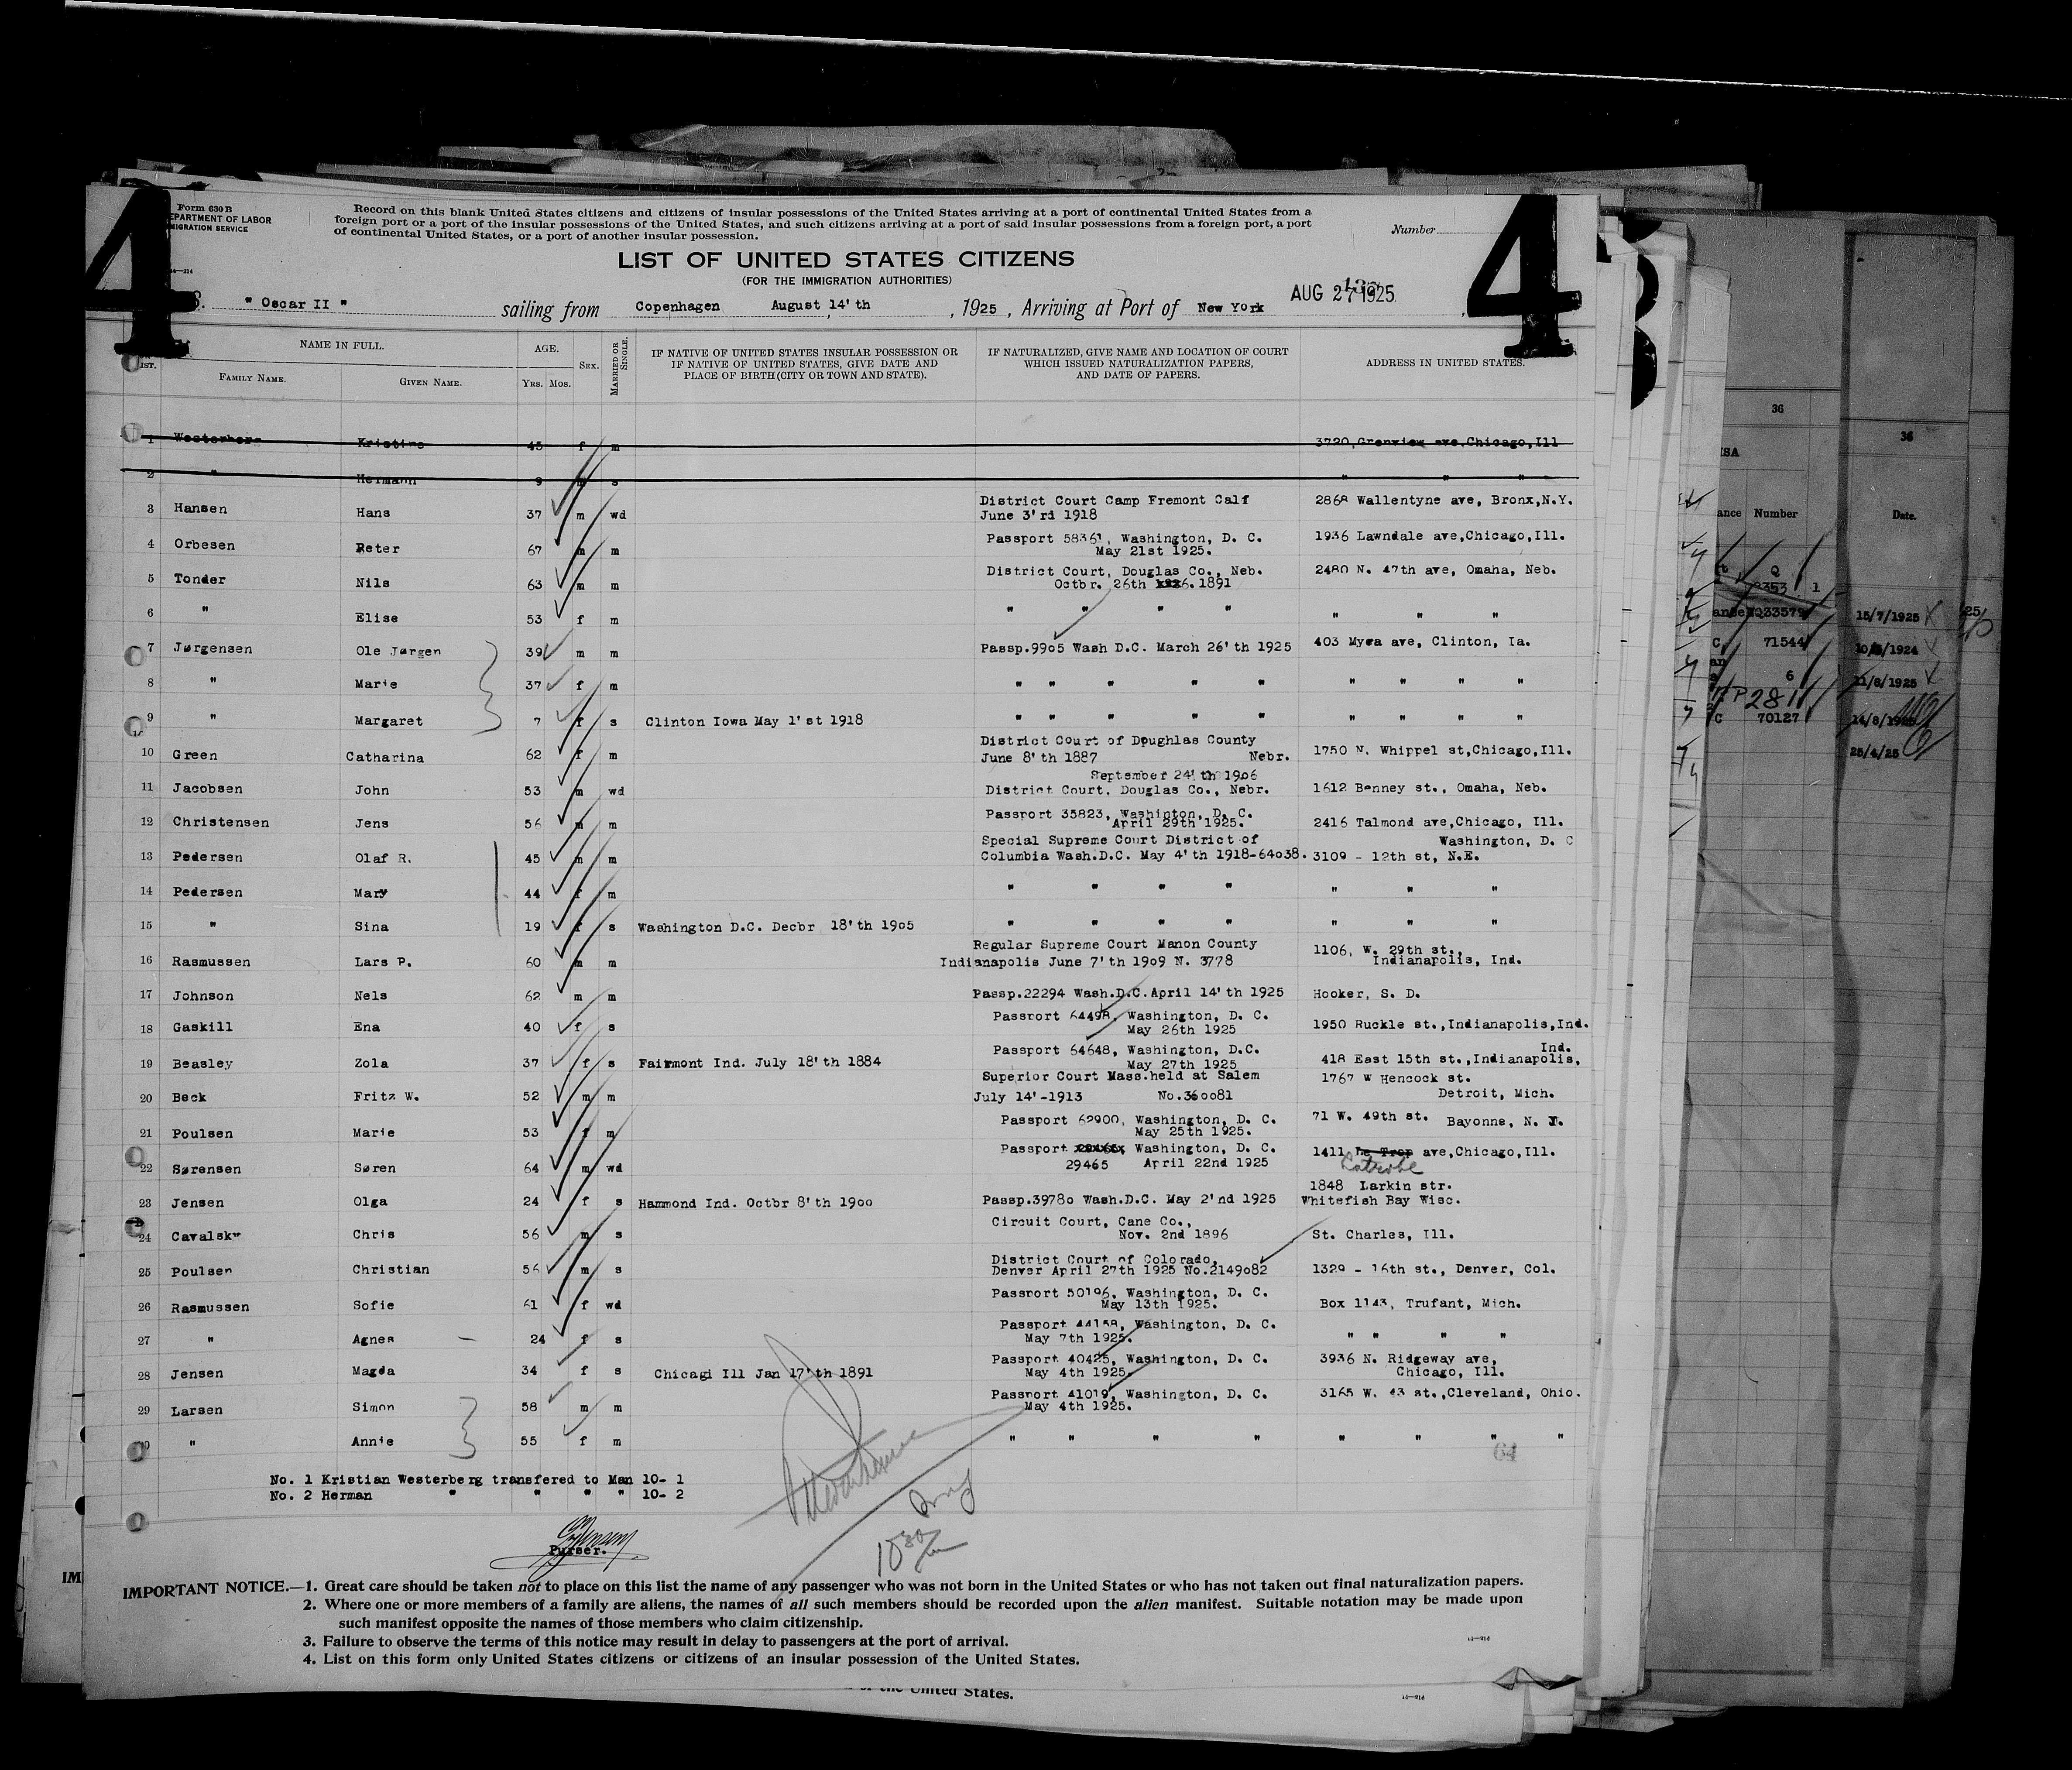 4
Form 630 B
EPARTMENT OF LABOR
MIGRATION SERVICE
Record on this blank United States citizens and citizens of insular possessions of the United States arriving at a port of continental United States from a
foreign port or a port of the insular possessions of the United States, and such citizens arriving at a port of said insular possessions from a foreign port, a port
of continental United States, or a port of another insular possession.
Number
4
LIST OF UNITED STATES CITIZENS
(FOR THE IMMIGRATION AUTHORITIES)
S. " Oscar II " sailing from Copenhagen August 14'th , 1925 , Arriving at Port of New York AUG 27 1925
IST. NAME IN FULL. AGE. SEX. MARRIED OR SINGLE. IF NATIVE OF UNITED STATES INSULAR POSSESSION OR IF NATIVE OF UNITED STATES, GIVE DATE AND PLACE OF BIRTH (CITY OR TOWN AND STATE). IF NATURALIZED, GIVE NAME AND LOCATION OF COURT WHICH ISSUED NATURALIZATION PAPERS, AND DATE OF PAPERS. ADDRESS IN UNITED STATES.
FAMILY NAME. GIVEN NAME. YRS. MOS.
1 Westerberg Kristine 45 f m 3720, Grenview ave, Chicago, Ill
2 " Hermann 9 m s " " "
3 Hansen Hans 37 m wd District Court Camp Fremont Calf 2868 Wallentyne ave, Bronx, N.Y.
June 3'rd 1918
4 Orbesen Peter 67 m m Passport 58361, Washington, D. C. 1936 Lawndale ave, Chicago, Ill.
May 21st 1925.
5 Tonder Nils 63 m m District Court, Douglas Co., Neb. 2480 N. 47th ave, Omaha, Neb.
Octbr. 26th 1891
6 " Elise 53 f m " " " " " " "
7 Jørgensen Ole Jørgen 39 m m Passp.9905 Wash D.C. March 26'th 1925 403 Myra ave, Clinton, Ia.
8 " Marie 37 f m " " " " " " " " "
9 " Margaret 7 f s Clinton Iowa May 1'st 1918 " " " " " " " " "
10 Green Catharina 62 f m District Court of Doughlas County 1750 N. Whippel st, Chicago, Ill.
June 8'th 1887 Nebr.
September 24'th 1906
11 Jacobsen John 53 m wd District Court, Douglas Co., Nebr. 1612 Benney st., Omaha, Neb.
12 Christensen Jens 56 m m Passport 35823, Washinton, D. C. 2416 Talmond ave, Chicago, Ill.
April 29th 1925.
Special Supreme Court District of Washington, D. C
13 Pedersen Olaf R. 45 m m Columbia Wash.D.C. May 4'th 1918-64038. 3109 - 12th st, N.E.
14 Pedersen Mary 44 f m " " " " " " "
15 " Sina 19 f s Washington D.C. Decbr 18'th 1905 " " " " " " "
Regular Supreme Court Manon County 1106, W. 29th st.,
16 Rasmussen Lars P. 60 m m Indianapolis June 7'th 1909 N. 3778 Indianapolis, Ind.
17 Johnson Nels 62 m m Passp.22294 Wash.D.C. April 14'th 1925 Hooker, S. D.
18 Gaskill Ena 40 f s Passport 64498, Washington, D. C. 1950 Ruckle st., Indianapolis, Ind.
May 26th 1925
19 Beasley Zola 37 f s Fairmont Ind. July 18'th 1884 Passport 64648, Washington, D.C. 418 East 15th st., Indianapolis, Ind.
May 27th 1925
Superior Court Mass.held at Salem 1767 W Hencock st.
20 Beck Fritz W. 52 m m July 14'-1913 No.360081 Detroit, Mich.
21 Poulsen Marie 53 f m Passport 62900, Washington, D. C. 71 W. 49th st. Bayonne, N. J.
May 25th 1925.
Passport Washington, D. C. 1411 Le Trop ave, Chicago, Ill.
22 Sørensen Søren 64 m wd 29465 April 22nd 1925 Latrobe
1848 Larkin str.
23 Jensen Olga 24 f s Hammond Ind. Octbr 8'th 1900 Passp.39780 Wash.D.C. May 2'nd 1925 Whitefish Bay Wisc.
Circuit Court, Cane Co.,
24 Cavalsky Chris 56 m s Nov. 2nd 1896 St. Charles, Ill.
District Court of Colorado,
25 Poulsen Christian 56 m s Denver April 27th 1925 No.2149082 1329 - 16th st., Denver, Col.
26 Rasmussen Sofie 61 f wd Passport 50196, Washington, D. C. Box 1143, Trufant, Mich.
May 13th 1925.
27 " Agnes 24 f s Passport 44158, Washington, D. C. " " " "
May 7th 1925.
28 Jensen Magda 34 f s Chicagi Ill Jan 17'th 1891 Passport 40425, Washington, D. C. 3936 N. Ridgeway ave,
May 4th 1925. Chicago, Ill.
29 Larsen Simon 58 m m Passport 41019, Washington, D. C. 3165 W. 43 st., Cleveland, Ohio.
May 4th 1925.
30 " Annie 55 f m " " " " " " " "
64
No. 1 Kristian Westerberg transfered to Man 10- 1
No. 2 Herman " " " " 10- 2
Purser.
IMPORTANT NOTICE.—1. Great care should be taken not to place on this list the name of any passenger who was not born in the United States or who has not taken out final naturalization papers.
2. Where one or more members of a family are aliens, the names of all such members should be recorded upon the alien manifest. Suitable notation may be made upon
such manifest opposite the names of those members who claim citizenship.
3. Failure to observe the terms of this notice may result in delay to passengers at the port of arrival.
4. List on this form only United States citizens or citizens of an insular possession of the United States.
United States.
IM
36
36
ISA
ance Number Date.
Q33579 15/7/1925
C 71544
6 11/8/1925
PP2811
C 70127
25/4/25